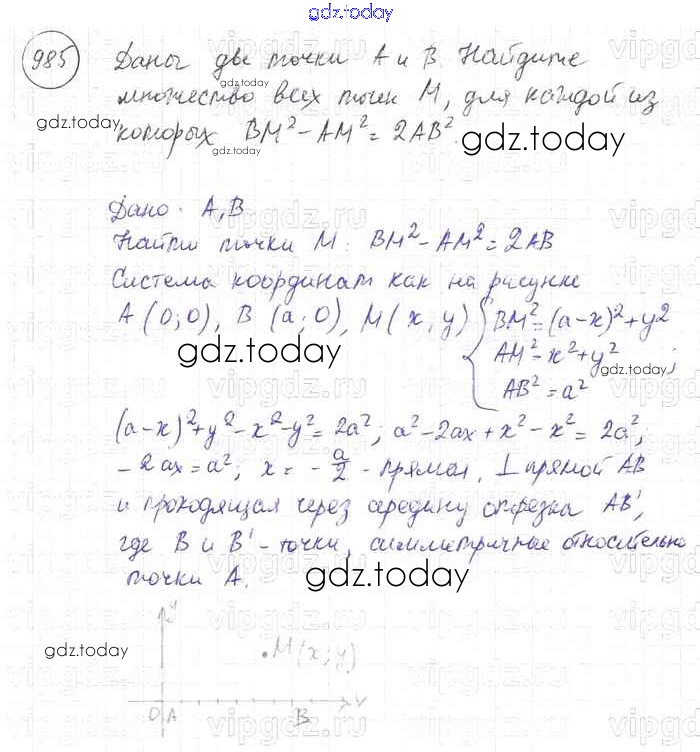 gdz.today
985 Даны две точки A и B. Найдите
gdz.today
множество всех точек M, для каждой из
gdz.today
которых BM² - AM² = 2AB².
gdz.today
gdz.today
Дано: A, B
Найти точки M: BM² - AM² = 2AB
Система координат как на рисунке
A (0; 0), B (a; 0), M (x; y) { BM² = (a-x)² + y²
AM² = x² + y²
AB² = a² ;
gdz.today
gdz.today
(a-x)² + y² - x² - y² = 2a²; a² - 2ax + x² - x² = 2a²;
-2ax = a²; x = -a/2 - прямая, ⊥ прямой AB
и проходящая через середину отрезка AB',
где B и B' - точки, симметричные относительно
точки A.
gdz.today
gdz.today
y
M (x; y)
O A B x
vipgdz.ru